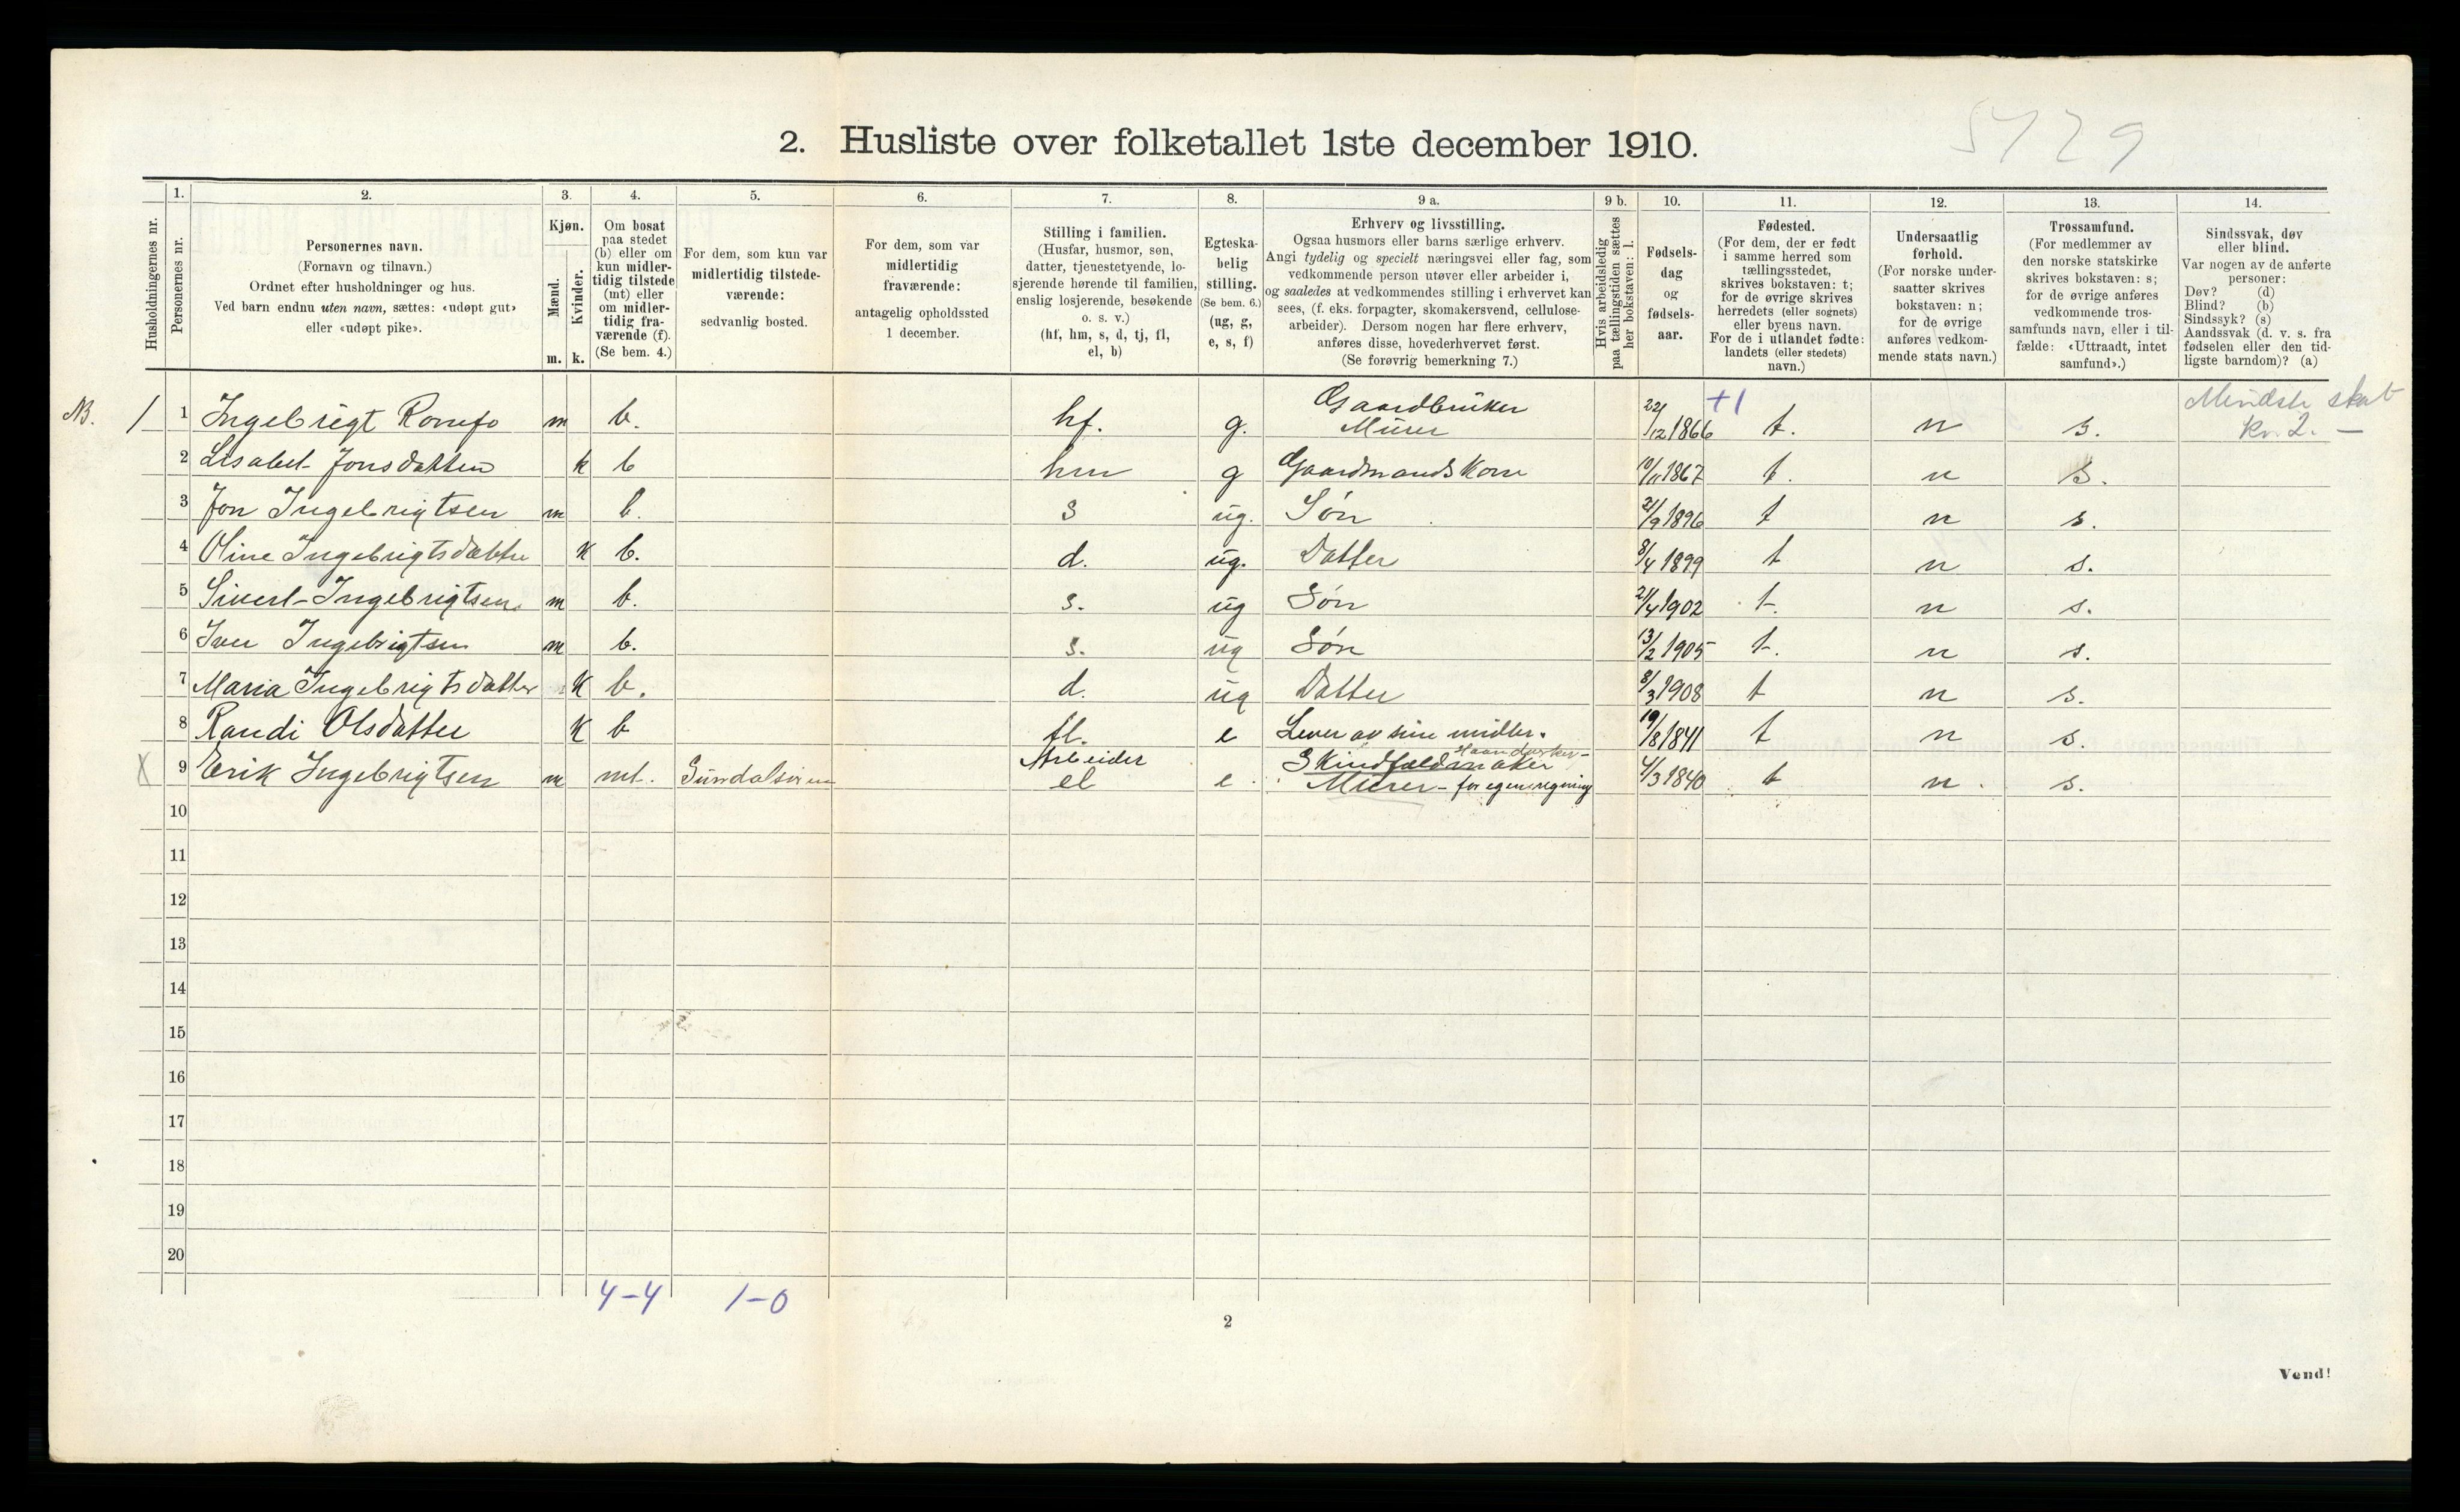 5729
2. Husliste over folketallet 1ste december 1910.
Husholdningernes nr.
1. Personernes nr.
2. Personernes navn.
(Fornavn og tilnavn.)
Ordnet efter husholdninger og hus.
Ved barn endnu uten navn, sættes: «udøpt gut»
eller «udøpt pike».
3. Kjøn.
Mænd. m.
Kvinder. k.
4. Om bosat
paa stedet
(b) eller om
kun midler-
tidig tilstede
(mt) eller
om midler-
tidig fra-
værende (f).
(Se bem. 4.)
5. For dem, som kun var
midlertidig tilstede-
værende:
sedvanlig bosted.
6. For dem, som var
midlertidig
fraværende:
antagelig opholdssted
1 december.
7. Stilling i familien.
(Husfar, husmor, søn,
datter, tjenestetyende, lo-
sjerende hørende til familien,
enslig losjerende, besøkende
o. s. v.)
(hf, hm, s, d, tj, fl,
el, b)
8. Egteska-
belig
stilling.
(Se bem. 6.)
(ug, g,
e, s, f)
9 a. Erhverv og livsstilling.
Ogsaa husmors eller barns særlige erhverv.
Angi tydelig og specielt næringsvei eller fag, som
vedkommende person utøver eller arbeider i,
og saaledes at vedkommendes stilling i erhvervet kan
sees, (f. eks. forpagter, skomakersvend, cellulose-
arbeider). Dersom nogen har flere erhverv,
anføres disse, hovederhvervet først.
(Se forøvrig bemerkning 7.)
9 b. Hvis arbeidsledig
paa tællingstiden sættes
her bokstaven: l.
10. Fødsels-
dag
og
fødsels-
aar.
11. Fødested.
(For dem, der er født
i samme herred som
tællingsstedet,
skrives bokstaven: t;
for de øvrige skrives
herredets (eller sognets)
eller byens navn.
For de i utlandet fødte:
landets (eller stedets)
navn.)
12. Undersaatlig
forhold.
(For norske under-
saatter skrives
bokstaven: n;
for de øvrige
anføres vedkom-
mende stats navn.)
13. Trossamfund.
(For medlemmer av
den norske statskirke
skrives bokstaven: s;
for de øvrige anføres
vedkommende tros-
samfunds navn, eller i til-
fælde: «Uttraadt, intet
samfund».)
14. Sindssvak, døv
eller blind.
Var nogen av de anførte
personer:
Døv? (d)
Blind? (b)
Sindssyk? (s)
Aandssvak (d. v. s. fra
fødselen eller den tid-
ligste barndom)? (a)
NB. 1 1 Ingebrigt Romfo m b. hf. g. Gaardbruker Murer 22/12 1866 +1 t. n s. Mindste skat kr. 2. —
2 Lisabet Jonsdatter k b hm g Gaardmandskone 10/11 1867 t. n s.
3 Jon Ingebrigtsen m b. s ug. Søn 21/9 1896 t n s.
4 Oline Ingebrigtsdatter k b. d. ug. Datter 8/4 1899 t n s.
5 Sivert Ingebrigtsen m b. s. ug Søn 21/4 1902 t. n s.
6 Iver Ingebrigtsen m b. s. ug Søn 13/2 1905 t. n s.
7 Maria Ingebrigtsdatter k b. d. ug Datter 8/3 1908 t n s.
8 Randi Olsdatter k b fl. e Lever av sine midler. 19/8 1841 t n s.
X 9 Erik Ingebrigtsen m mt. Sundalsøren Arbeider el e Skindfældmaker Haandverker- Murer - for egen regning 4/3 1840 t n. s.
10
11
12
13
14
15
16
17
18
19
20
4-4 1-0
2
Vend!